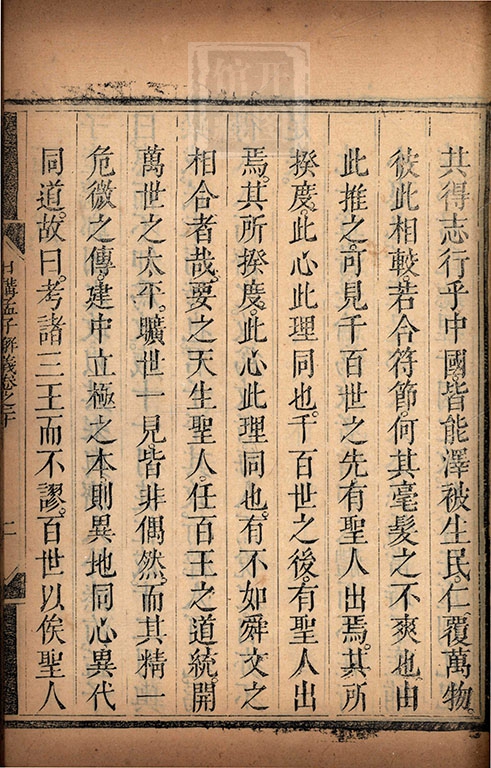 共得志行乎中國皆能澤被生民。仁覆萬物。
彼此相較。若合符節。何其毫髮之不爽也由
此推之。可見千百世之先有聖人出焉。其所
揆度。此心此理同也。千百世之後。有聖人出
焉。其所揆度。此心此理同也。有不如舜文之
相合者哉。要之天生聖人。任百王之道統。開
萬世之太平。曠世一見皆非偶然。而其精一
危微之傳。建中立極之本。則異地同心異代
同道。故曰。考諸三王而不謬。百世以俟聖人
日講孟子解義卷之 二